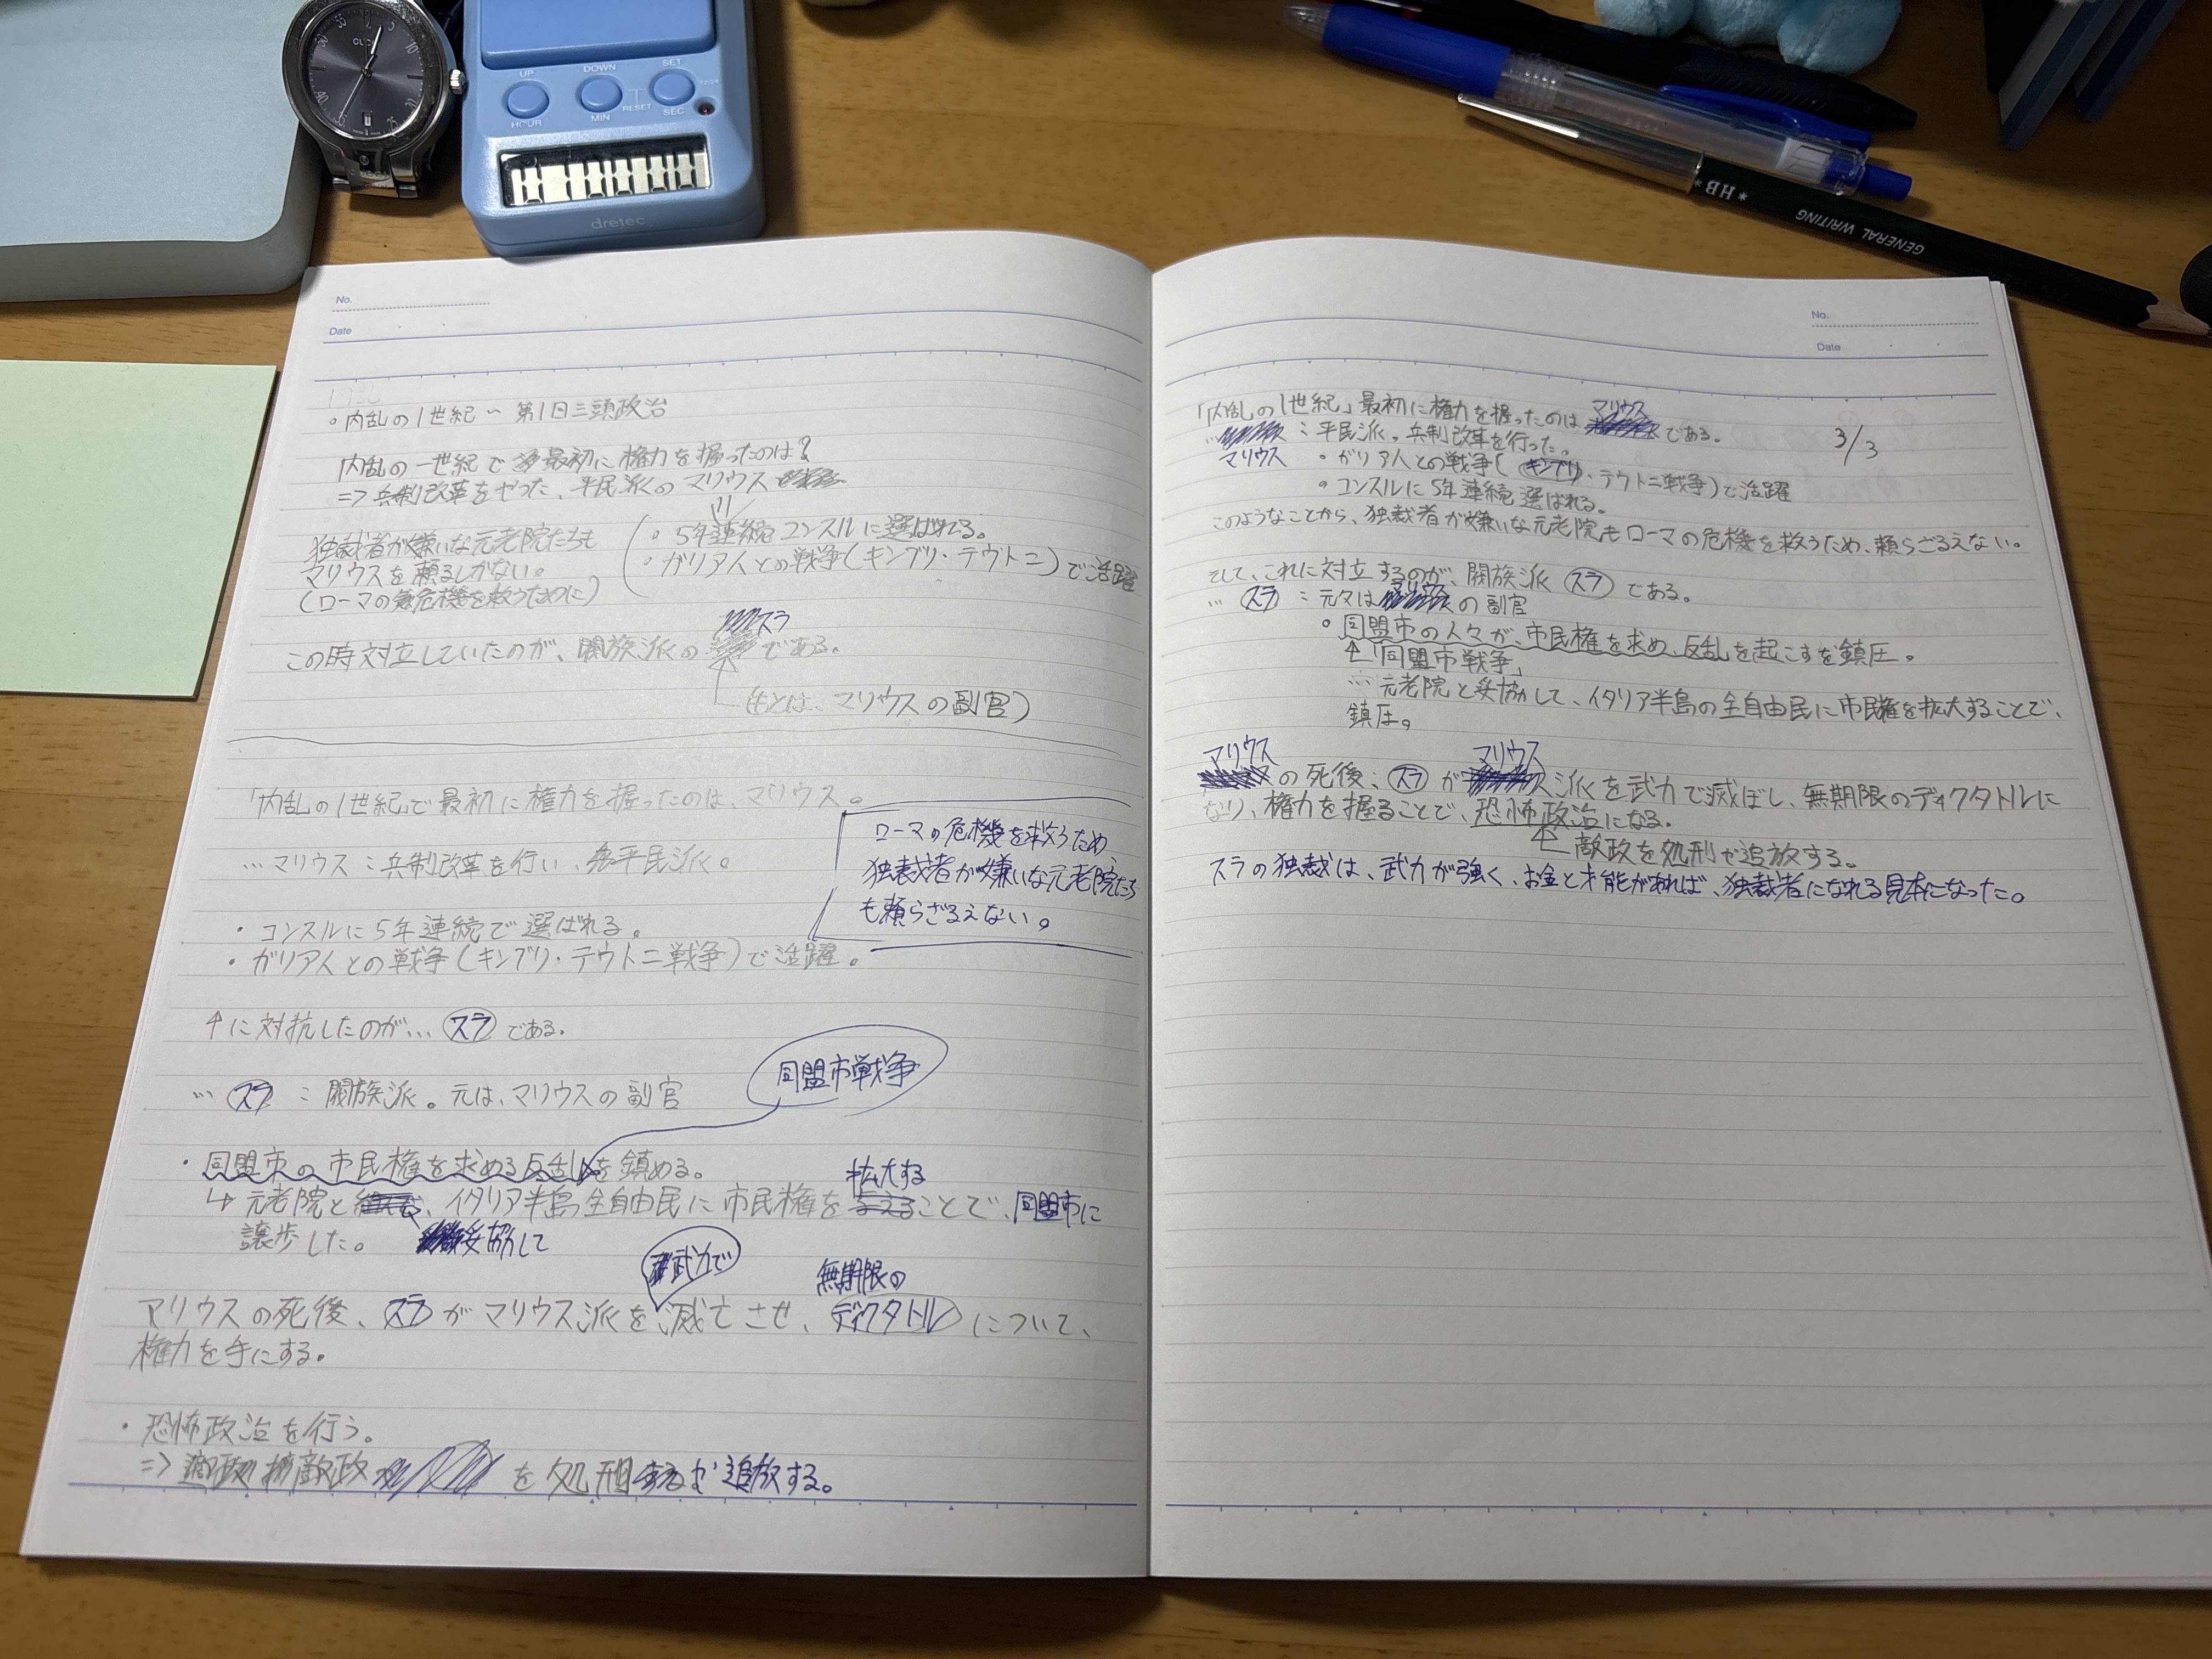 UP
DOWN
SET
HOUR
MIN
RESET
SEC
12/24
dretec
* HB *
GENERAL WRITING
No.
Date
・内乱の1世紀 〜 第1回三頭政治
内乱の一世紀で最初に権力を握ったのは?
=> 兵制改革をやった、平民派のマリウス
・5年連続コンスルに選ばれる。
・ガリア人との戦争(キンブリ・テウトニ)で活躍
独裁者が嫌いな元老院たちも
マリウスを頼るしかない。
(ローマの危機を救うために)
スラ
この時対立していたのが、閥族派の である。
(もとは、マリウスの副官)
「内乱の1世紀で最初に権力を握ったのは、マリウス。
… マリウス : 兵制改革を行い、平民派。
ローマの危機を救うため
独裁者が嫌いな元老院たち
も頼らざるえない。
・コンスルに5年連続で選ばれる。
・ガリア人との戦争(キンブリ・テウトニ戦争)で活躍。
↑に対抗したのが… スラ である。
同盟市戦争
… スラ : 閥族派。元は、マリウスの副官
・同盟市の市民権を求める反乱を鎮める。
拡大する
↳ 元老院と 、イタリア半島全自由民に市民権を与えることで、同盟市に
譲歩した。 妥協して
武力で 無期限の
マリウスの死後、スラがマリウス派を滅亡させ、ディクタトルについて、
権力を手にする。
・恐怖政治を行う。
=> 敵政 を処刑するか追放する。
No.
Date
マリウス
「内乱の1世紀」最初に権力を握ったのは である。
3/3
… : 平民派。兵制改革を行った。
マリウス ・ガリア人との戦争(キンブリ・テウトニ戦争)で活躍
・コンスルに5年連続選ばれる。
このようなことから、独裁者が嫌いな元老院もローマの危機を救うため、頼らざるえない。
そして、これに対立するのが、閥族派 スラ である。
マリウス
… スラ : 元々は の副官
・同盟市の人々が、市民権を求め、反乱を起こすを鎮圧。
↑「同盟市戦争」
… 元老院と妥協して、イタリア半島の全自由民に市民権を拡大することで、
鎮圧。
マリウス マリウス
の死後、スラ が 派を武力で滅ぼし、無期限のディクタトルに
なり、権力を握ることで、恐怖政治になる。
↑ 敵政を処刑や追放する。
スラの独裁は、武力が強く、お金と才能があれば、独裁者になれる見本になった。